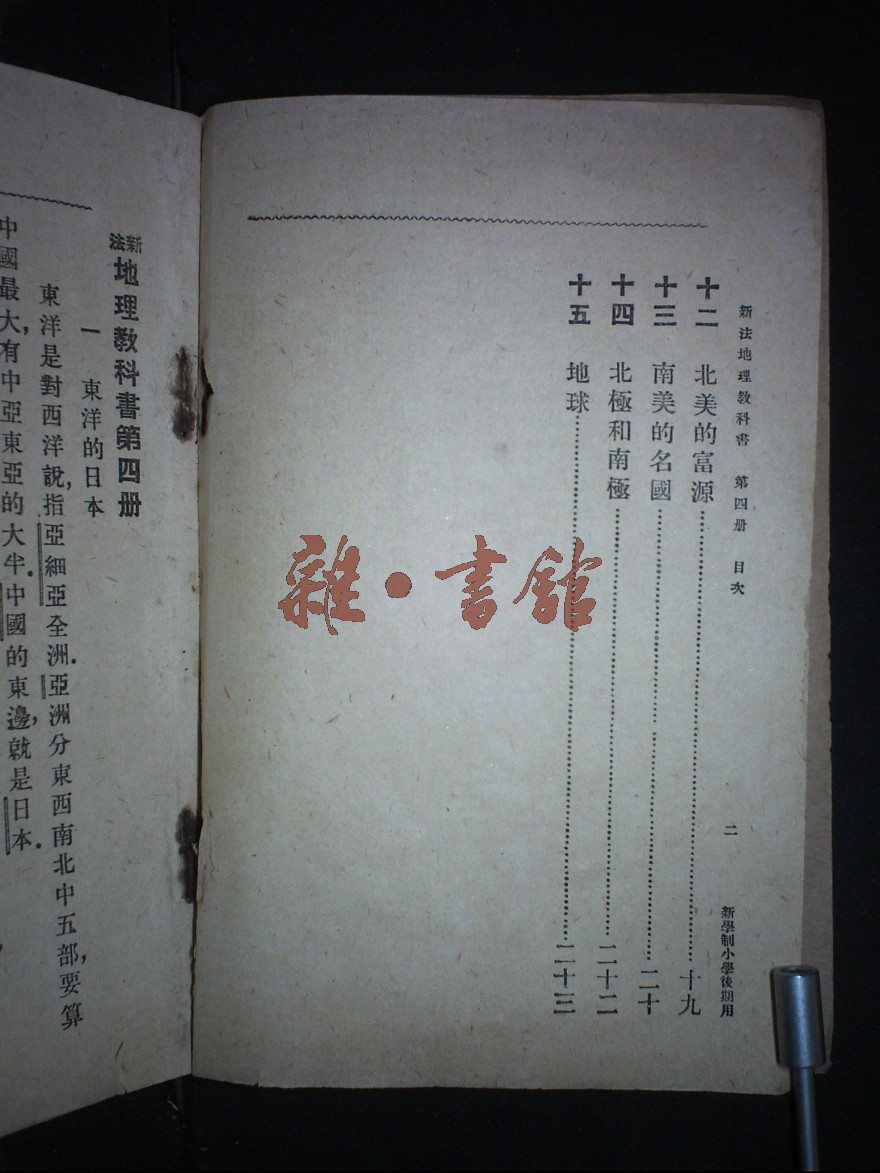 新法地理教科書 第四册 目次
二
新學制小學後期用
十二 北美的富源……十九
十三 南美的名國……二十
十四 北極和南極……二十二
十五 地球……二十三
雜·書館
新法地理教科書第四册
一 東洋的日本
東洋是對西洋說,指亞細亞全洲.亞洲分東西南北中五部,要算
中國最大,有中亞東亞的大半.中國的東邊,就是日本.